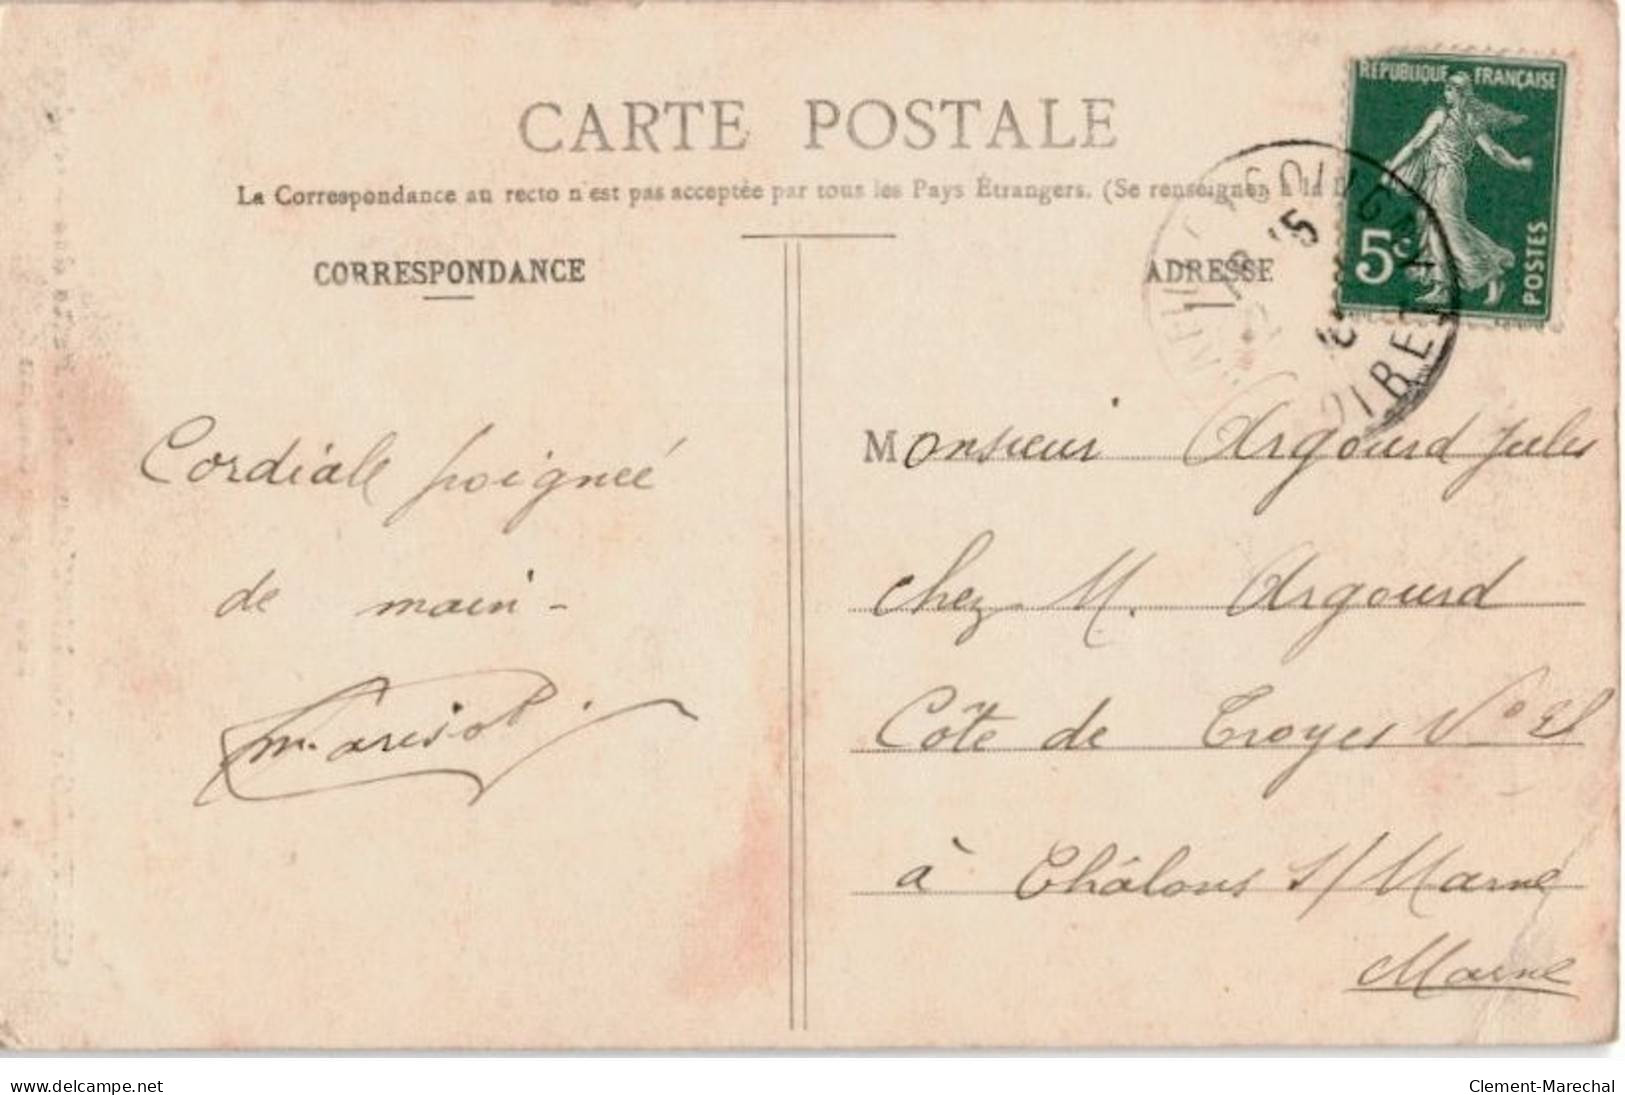 CARTE POSTALE
La Correspondance au recto n'est pas acceptée par tous les Pays Étrangers. (Se renseigner à la
CORRESPONDANCE
ADRESSE
REPUBLIQUE FRANÇAISE
5c
POSTES
Cordiale poigneé
de main -
Monsieur Argourd Jules
chez M. Argourd
Côte de Troyes N°
à Châlons s/ Marne
Marne
www.delcampe.net
Clement-Marechal